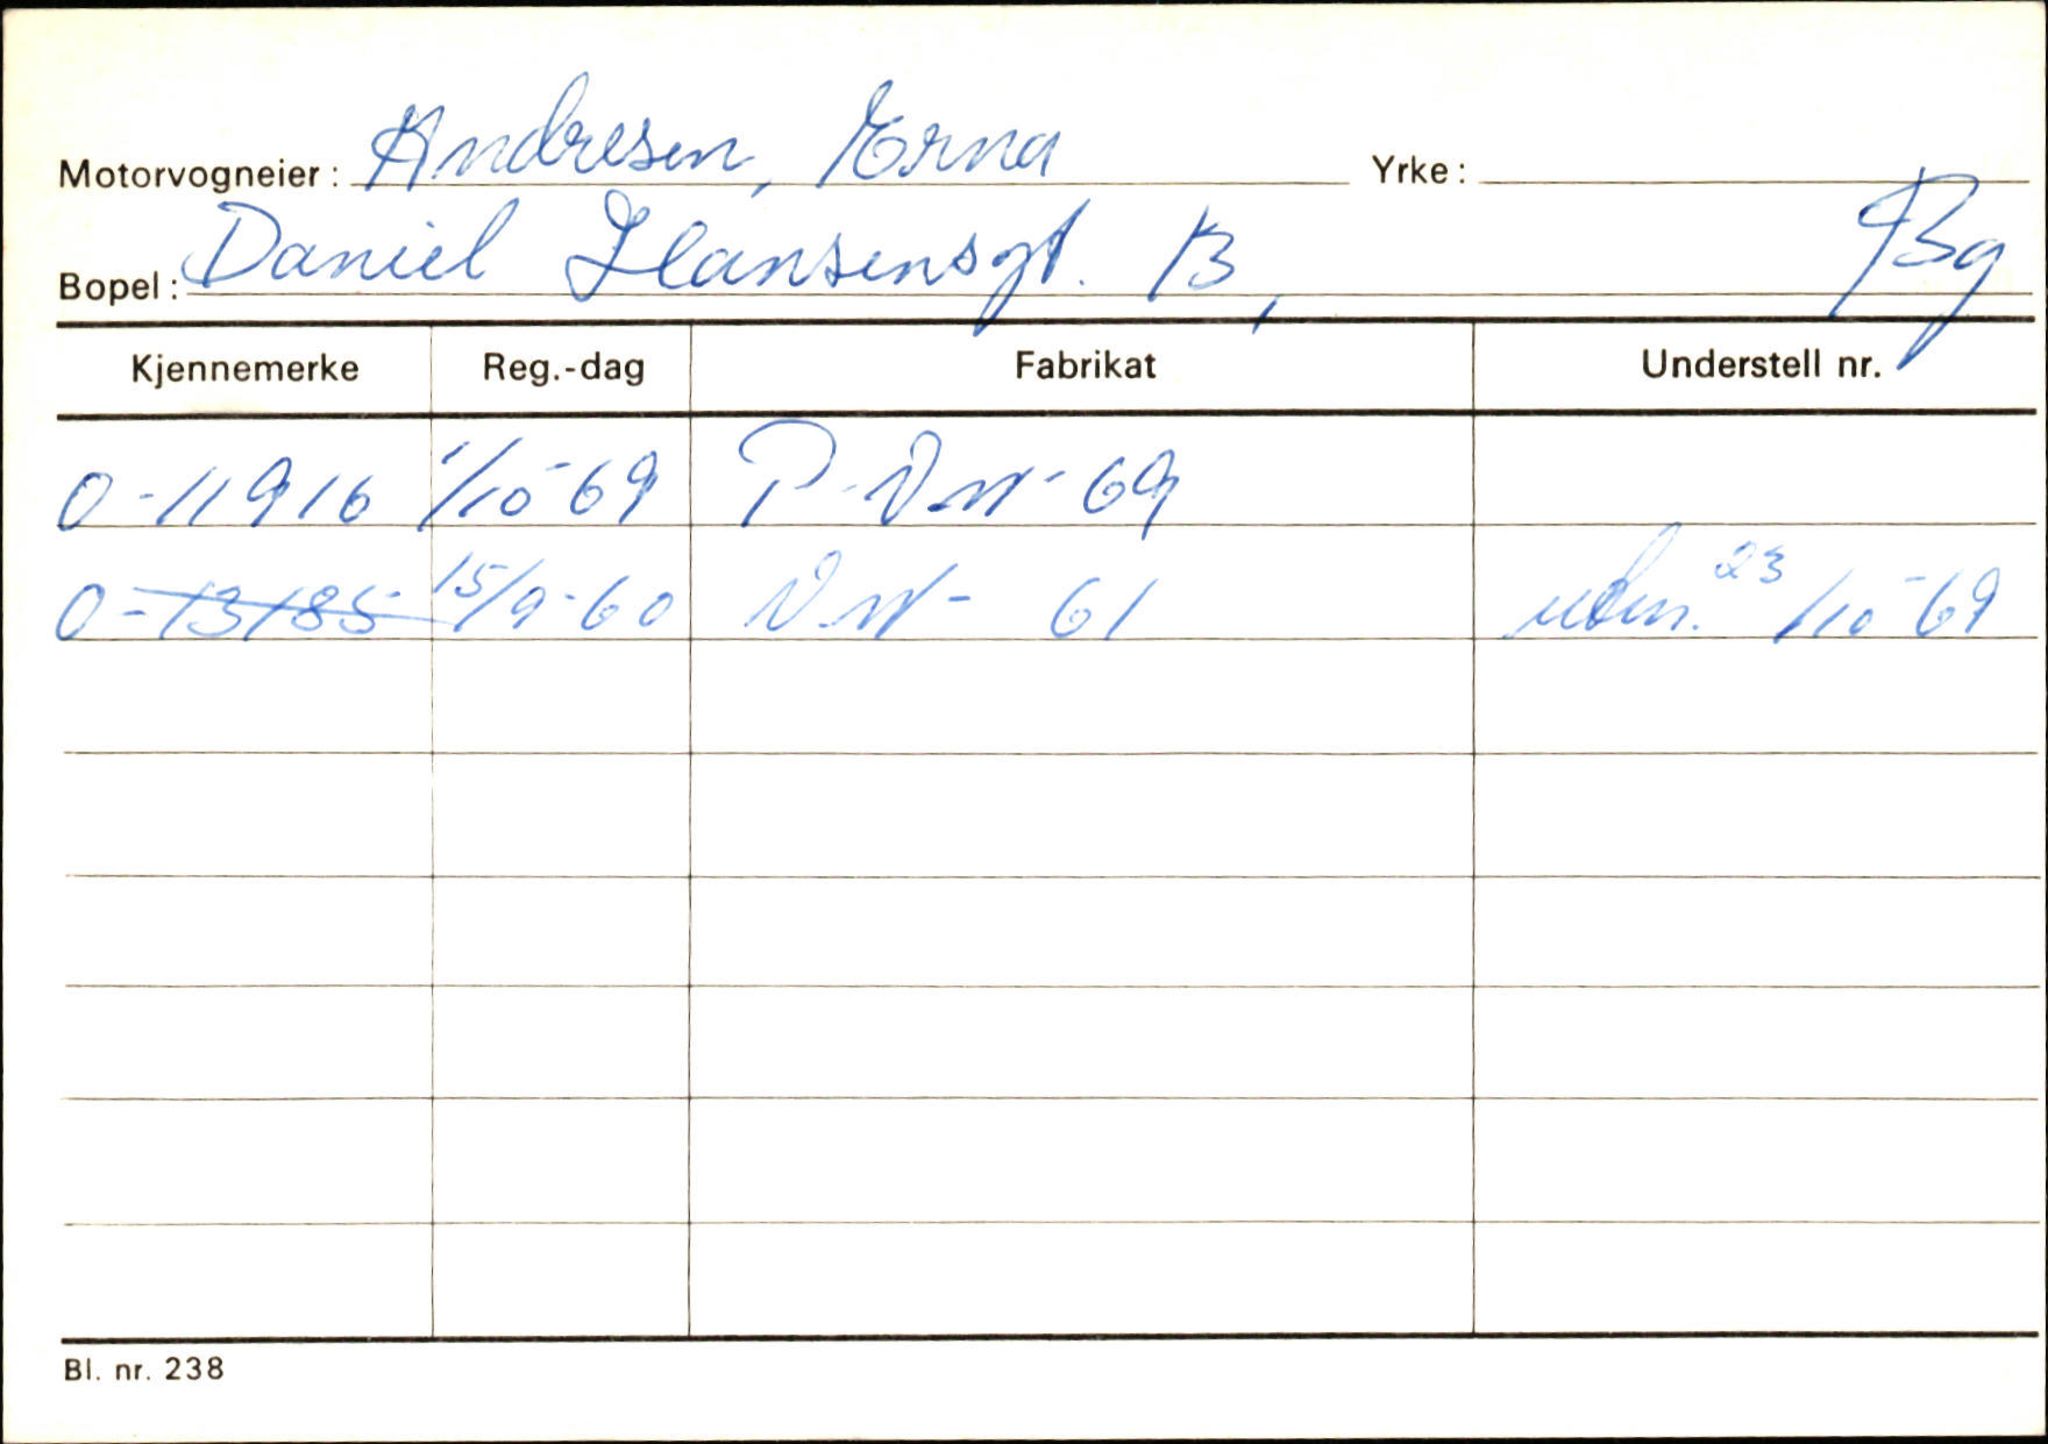 Motorvogneier: Andresen, Erna Yrke:
Bopel: Daniel Hansensgt. 13, Bg
Kjennemerke Reg.-dag Fabrikat Understell nr.
O-11916 1/10-69 P-VW-69
O-13185 15/9-60 VW- 61 utm. 23/10-69
Bl. nr. 238